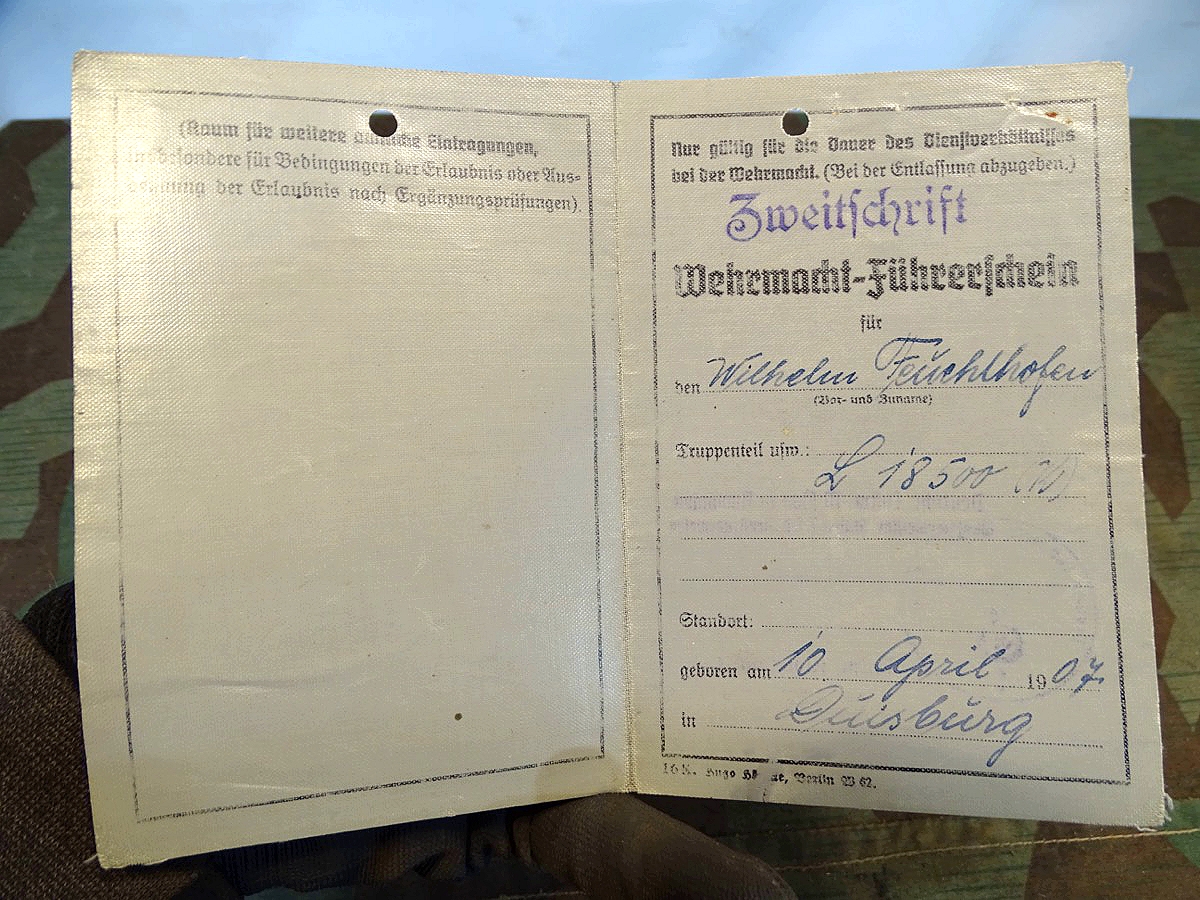 (Raum für weitere amtliche Eintragungen,
insbesondere für Bedingungen der Erlaubnis oder Aus-
dehnung der Erlaubnis nach Ergänzungsprüfungen).
Nur gültig für die Dauer des Dienstverhältnisses
bei der Wehrmacht. (Bei der Entlassung abzugeben.)
Zweitschrift
Wehrmacht-Führerschein
für
den Wilhelm Feuchthofen
(Vor- und Zuname)
Truppenteil usw.:
L 18500
Standort:
geboren am 10 April 1907.
in Duisburg
16 K. Hugo Berlin W 62.